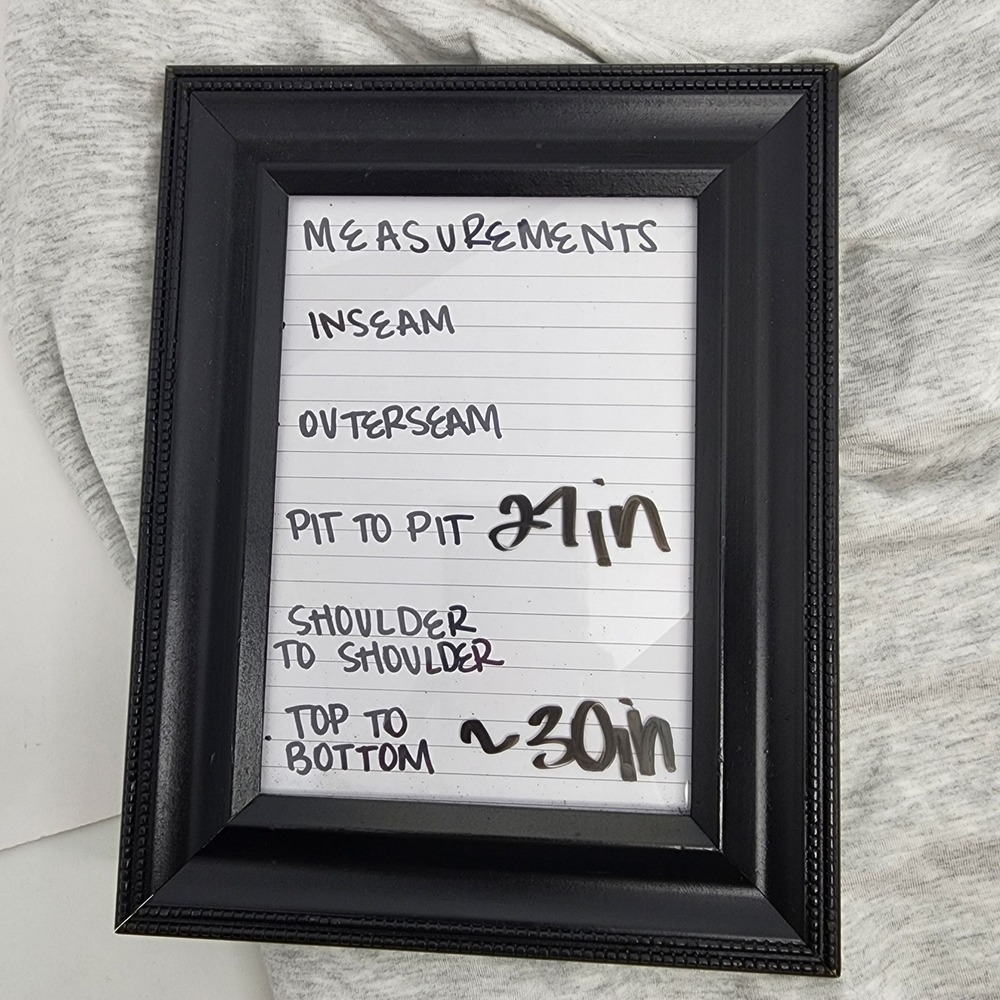 MEASUREMENTS
INSEAM
OUTERSEAM
PIT TO PIT 21in
SHOULDER
TO SHOULDER
TOP TO
BOTTOM ~30in